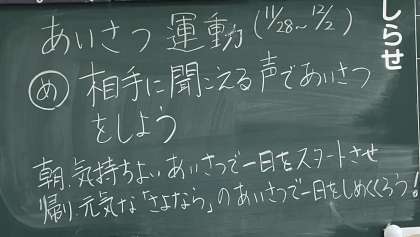 しらせ
あいさつ運動(11/28〜12/2)
め 相手に聞こえる声であいさつ
をしよう
朝.気持ちよいあいさつで一日をスタートさせ
帰り.元気な「さよなら」のあいさつで一日をしめくくろう!